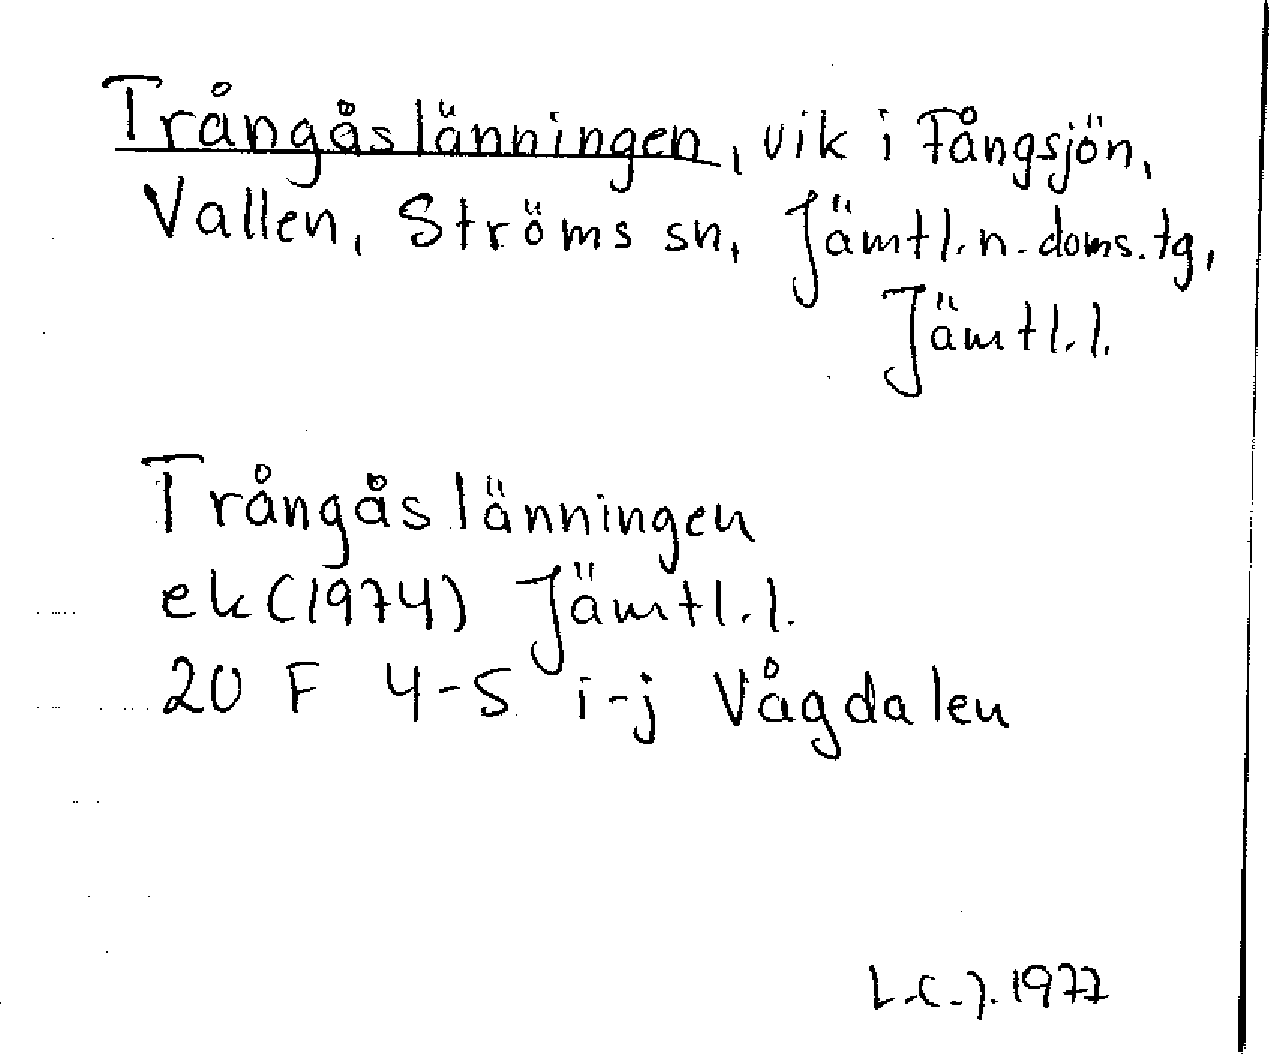 Trångåslänningen, vik i Fångsjön,
Vallen, Ströms sn, Jämtl. n. doms. tg,
Jämtl. l.
Trångåslänningen
ek (1974) Jämtl. l.
20 F 4-5 i-j Vågdalen
L.C.J. 1977